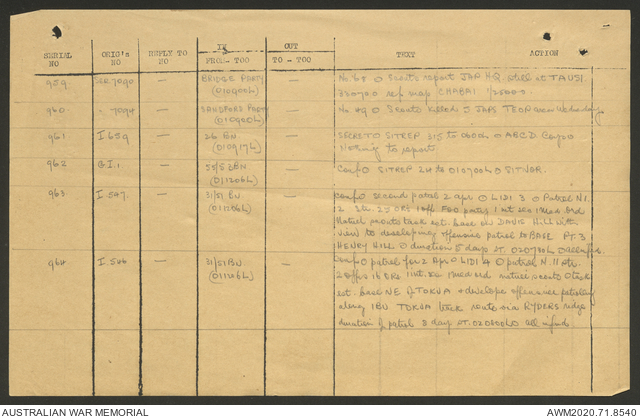 SERIAL NO ORIG's NO REPLY TO NO IN FROM - TOO OUT TO - TOO TEXT ACTION
959 See 7090 — BRIDGE PARTY (010900L) — No 68 O Scouts report JAP HQ still at TAUSI.
350700 ref map CHABAI 1/25000.
960 " 7094 — SANDFORD PARTY (010900L) — No 49 O Scouts killed 5 JAPS TEOP area Wednesday
961 I 659 — 26 BN (010917L) — SECRET O SITREP 315 to 0600L O ABCD Coys O
Nothing to report.
962 G.I.1. — 55/53 BN (011206L) — Conf O SITREP 24 to 010700L O SITNOR.
963 I.547. — 31/51 BN (011206L) — conf O second patrol 2 apr O LIDI 3 O Patrol N1.
2 Sec 25 ORs 1 off FOO party 1 int sec 1 Med Ord
native scouts task est. base on DAVIS HILL with
view to developing offensive patrol to BASE PT. 3
HENRY HILL O duration 5 days ST. 020700L O all infmd.
964 I.546 — 31/51 BN. (011206L) — Conf O patrol for 2 Apr O LIDI 4 O patrol N.11 Ptn.
2 offrs 16 ORs 1 int. 1 med ord native scouts O task
est. base NE of TOKUA + develope offensive patrolling
along IBU TOKUA track route via RYDERS ridge
duration of patrol 8 days ST. 020800L O all infmd.
AUSTRALIAN WAR MEMORIAL
AWM2020.71.8540